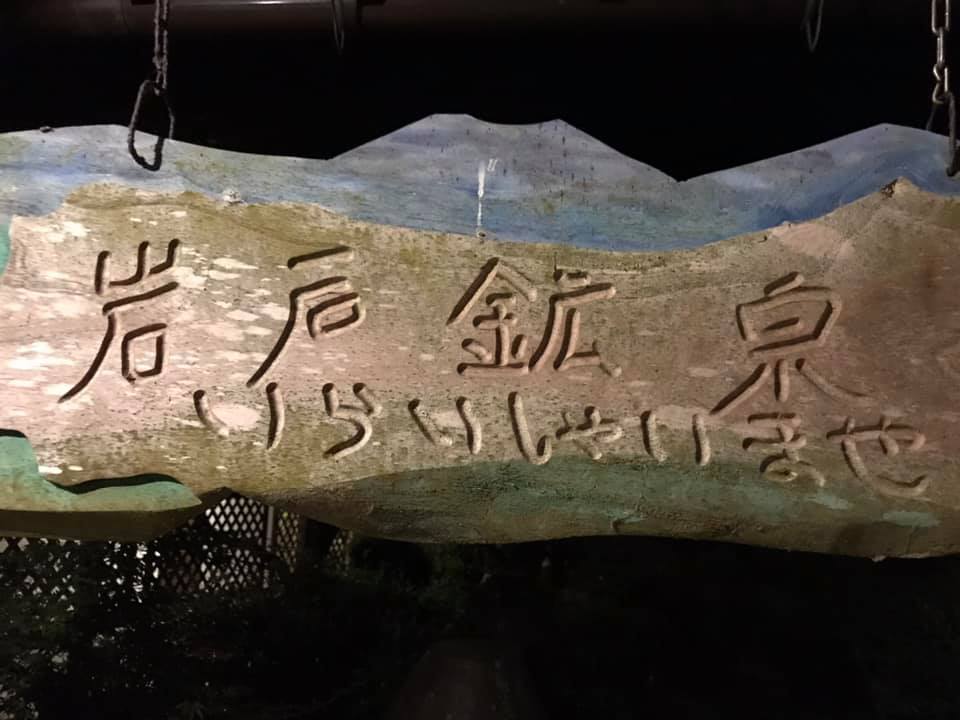 岩戸鉱泉
いらいしゃいませ